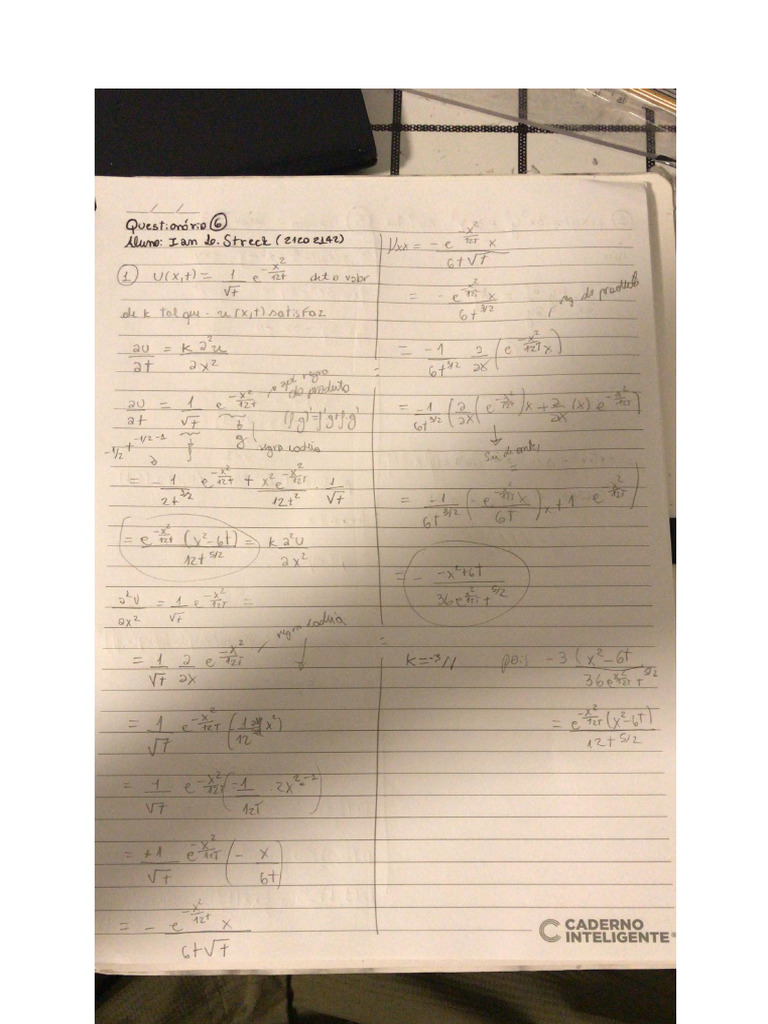 Questionário 6
Aluno: Ian L. Streck (21202142)
1 U(x,t) = 1/√t e^(-x²/12t) det o valor
de k tal que u(x,t) satisfaz
∂U/∂t = k ∂²u/∂x²
∂U/∂t = 1/√t e^(-x²/12t) regra do produto
-1/2 t^(-1/2-1) f g (f·g)'=f'g+f·g'
regra cadeia
= -1/2t^(3/2) e^(-x²/12t) + x²e^(-x²/12t)/12t² · 1/√t
= e^(-x²/12t) (x²-6t)/12t^(5/2) = k ∂²U/∂x²
∂²U/∂x² = 1/√t e^(-x²/12t) =
= 1/√t ∂/∂x e^(-x²/12t) regra cadeia
= 1/√t e^(-x²/12t) (1/12 x²)
= 1/√t e^(-x²/12t) (-1/12t · 2x^(2-1))
= +1/√t e^(-x²/12t) (- x/6t)
= - e^(-x²/12t) x/6t√t
Uxx = -e^(-x²/12t) x/6t√t
= -e^(-x²/12t) x/6t^(3/2) reg do produto
= -1/6t^(3/2) ∂/∂x (e^(-x²/12t) x)
= -1/6t^(3/2) (∂/∂x (e^(-x²/12t)) x + ∂/∂x (x) e^(-x²/12t))
= -1/6t^(3/2) (-e^(-x²/12t) x/6t) x + 1 · e^(-x²/12t))
= - -x²+6t/36e^(x²/12t) t^(5/2)
k=-3// pois -3 (x²-6t/36e^(x²/12t) t^(5/2)
= e^(-x²/12t) (x²-6t)/12t^(5/2)
CADERNO
INTELIGENTE